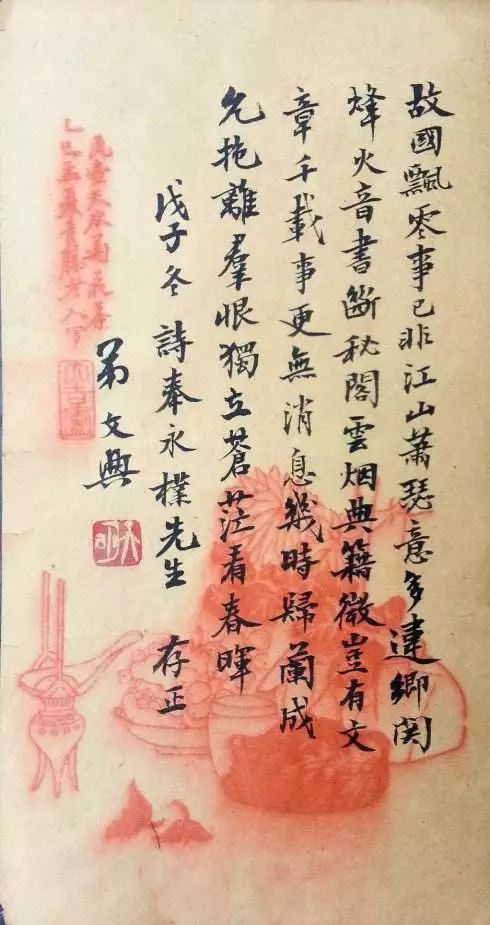 故國飄零事已非江山蕭瑟意多違鄉関
烽火音書斷秘閣雲烟典籍微豈有文
章千載事更無消息幾時歸蘭成
久抱離羣恨獨立蒼茫看春暉
戊子冬詩奉永樸先生 存正
弟文興
瓦壺天水菊花茶